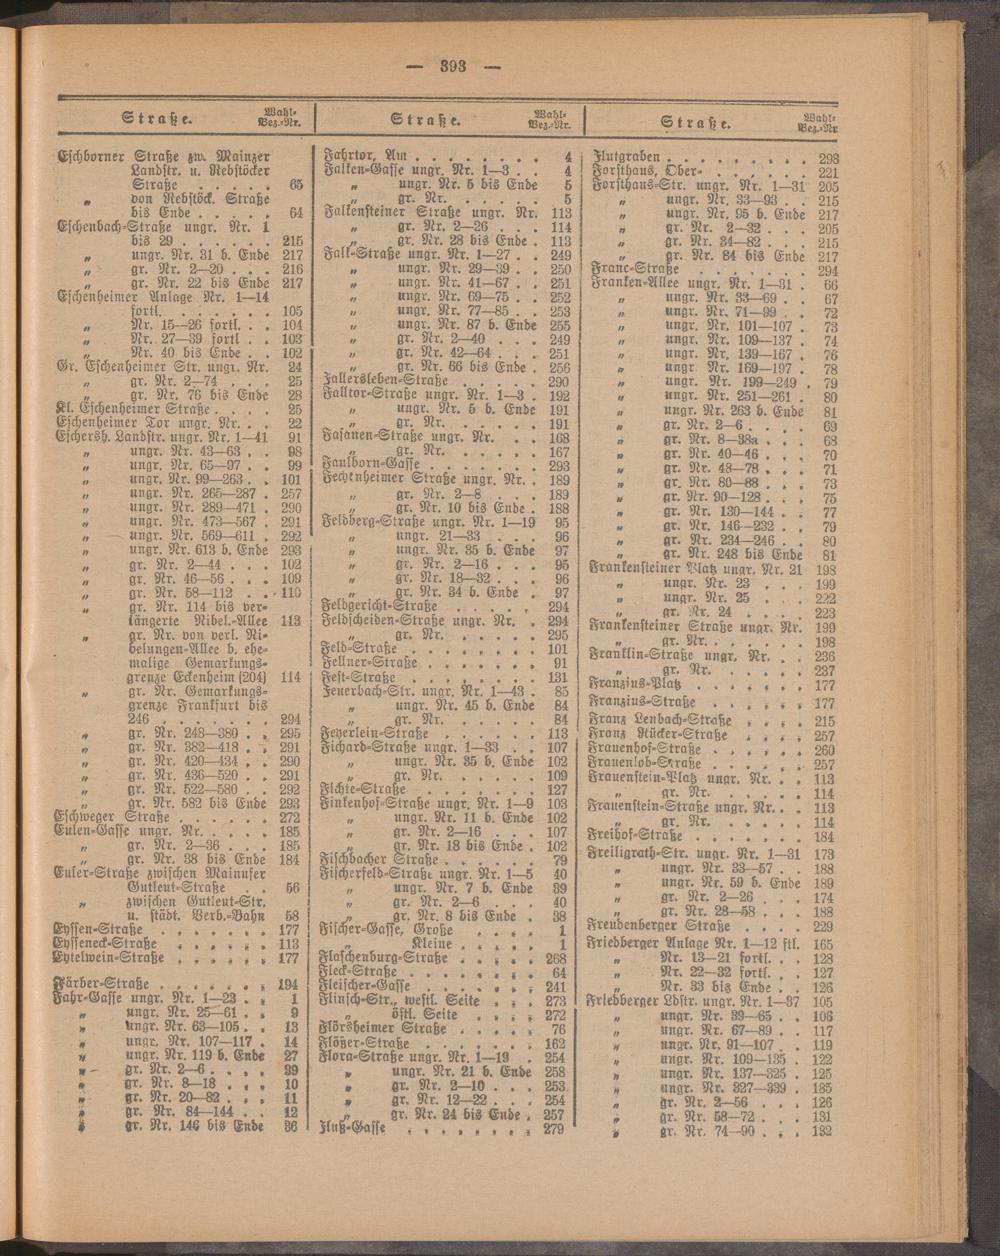 — 393 —
Straße. Wahl-Bez.-Nr.
Eschborner Straße zw. Mainzer
Landstr. u. Rebstöcker
Straße . . . . . 65
„ von Rebstöck. Straße
bis Ende . . . . . 64
Eschenbach-Straße ungr. Nr. 1
bis 29 . . . . . . 215
„ ungr. Nr. 31 b. Ende 217
„ gr. Nr. 2—20 . . . 216
„ gr. Nr. 22 bis Ende 217
Eschenheimer Anlage Nr. 1—14
fortl. . . . . . . 105
„ Nr. 15—26 fortl. . . 104
„ Nr. 27—39 fortl . . 103
„ Nr. 40 bis Ende . . 102
Gr. Eschenheimer Str. ungr. Nr. 24
„ gr. Nr. 2—74 . . . 25
„ gr. Nr. 76 bis Ende 28
Kl. Eschenheimer Straße . . . . 25
Eschenheimer Tor ungr. Nr. . . 22
Eschersh. Landstr. ungr. Nr. 1—41 91
„ ungr. Nr. 43—63 . . 98
„ ungr. Nr. 65—97 . . 99
„ ungr. Nr. 99—263 . . 101
„ ungr. Nr. 265—287 . 257
„ ungr. Nr. 289—471 . 290
„ ungr. Nr. 473—567 . 291
„ ungr. Nr. 569—611 . 292
„ ungr. Nr. 613 b. Ende 293
„ gr. Nr. 2—44 . . . 102
„ gr. Nr. 46—56 . . . 109
„ gr. Nr. 58—112 . . 110
„ gr. Nr. 114 bis ver-
längerte Nibel.-Allee 113
„ gr. Nr. von verl. Ni-
belungen-Allee b. ehe-
malige Gemarkungs-
grenze Eckenheim (204) 114
„ gr. Nr. Gemarkungs-
grenze Frankfurt bis
246 . . . . . . . 294
„ gr. Nr. 248—380 . . 295
„ gr. Nr. 382—418 . . 291
„ gr. Nr. 420—434 . . 290
„ gr. Nr. 436—520 . . 291
„ gr. Nr. 522—580 . . 292
„ gr. Nr. 582 bis Ende 293
Eschweger Straße . . . . . . 272
Eulen-Gasse ungr. Nr. . . . . 185
„ gr. Nr. 2—36 . . . 185
„ gr. Nr. 38 bis Ende 184
Euler-Straße zwischen Mainufer
Gutleut-Straße . . 56
„ zwischen Gutleut-Str.
u. städt. Verb.-Bahn 58
Eyssen-Straße . . . . . . . 177
Eysseneck-Straße . . . . . . 113
Eytelwein-Straße . . . . . . 177
Färber-Straße . . . . . . . 194
Fahr-Gasse ungr. Nr. 1—23 . . 1
„ ungr. Nr. 25—61 . . 9
„ ungr. Nr. 63—105 . . 13
„ ungr. Nr. 107—117 . 14
„ ungr. Nr. 119 b. Ende 27
„ gr. Nr. 2—6 . . . . 39
„ gr. Nr. 8—18 . . . 10
„ gr. Nr. 20—82 . . . 11
„ gr. Nr. 84—144 . . 12
„ gr. Nr. 146 bis Ende 36
Straße. Wahl-Bez.-Nr.
Fahrtor, Am . . . . . . . . 4
Falken-Gasse ungr. Nr. 1—3 . . 4
„ ungr. Nr. 5 bis Ende 5
„ gr. Nr. . . . . . 5
Falkensteiner Straße ungr. Nr. 113
„ gr. Nr. 2—26 . . . 114
„ gr. Nr. 28 bis Ende . 113
Falk-Straße ungr. Nr. 1—27 . . 249
„ ungr. Nr. 29—39 . . 250
„ ungr. Nr. 41—67 . . 251
„ ungr. Nr. 69—75 . . 252
„ ungr. Nr. 77—85 . . 253
„ ungr. Nr. 87 b. Ende 255
„ gr. Nr. 2—40 . . . 249
„ gr. Nr. 42—64 . . . 251
„ gr. Nr. 66 bis Ende . 256
Fallersleben-Straße . . . . . 290
Falltor-Straße ungr. Nr. 1—3 . 192
„ ungr. Nr. 5 b. Ende 191
„ gr. Nr. . . . . . 191
Fasanen-Straße ungr. Nr. . . 168
„ gr. Nr. . . . . . 167
Faulborn-Gasse . . . . . . . 293
Fechenheimer Straße ungr. Nr. . 189
„ gr. Nr. 2—8 . . . 189
„ gr. Nr. 10 bis Ende . 188
Feldberg-Straße ungr. Nr. 1—19 95
„ ungr. 21—33 . . . 96
„ ungr. Nr. 35 b. Ende 97
„ gr. Nr. 2—16 . . . 95
„ gr. Nr. 18—32 . . . 96
„ gr. Nr. 34 b. Ende . 97
Feldgericht-Straße . . . . . 294
Feldscheiden-Straße ungr. Nr. . 294
„ gr. Nr. . . . . . 295
Feld-Straße . . . . . . . . 101
Fellner-Straße . . . . . . . 91
Fest-Straße . . . . . . . . 131
Feuerbach-Str. ungr. Nr. 1—43 . 85
„ ungr. Nr. 45 b. Ende 84
„ gr. Nr. . . . . . 84
Feyerlein-Straße . . . . . . 113
Fichard-Straße ungr. 1—33 . . 107
„ ungr. Nr. 35 b. Ende 102
„ gr. Nr. . . . . . 109
Fichte-Straße . . . . . . . 127
Finkenhof-Straße ungr. Nr. 1—9 103
„ ungr. Nr. 11 b. Ende 102
„ gr. Nr. 2—16 . . . 107
„ gr. Nr. 18 bis Ende . 102
Fischbacher Straße . . . . . . 79
Fischerfeld-Straße ungr. Nr. 1—5 40
„ ungr. Nr. 7 b. Ende 39
„ gr. Nr. 2—6 . . . 40
„ gr. Nr. 8 bis Ende . 38
Fischer-Gasse, Große . . . . 1
„ Kleine . . . . . 1
Flaschenburg-Straße . . . . . 268
Fleck-Straße . . . . . . . . 64
Fleischer-Gasse . . . . . . . 241
Flinsch-Str., westl. Seite . . . 273
„ östl. Seite . . . . 272
Flörsheimer Straße . . . . . 76
Flößer-Straße . . . . . . . 162
Flora-Straße ungr. Nr. 1—19 . 254
„ ungr. Nr. 21 b. Ende 258
„ gr. Nr. 2—10 . . . 253
„ gr. Nr. 12—22 . . . 254
„ gr. Nr. 24 bis Ende . 257
Fluß-Gasse . . . . . . . . 279
Straße. Wahl-Bez.-Nr
Flutgraben . . . . . . . . . 298
Forsthaus, Ober- . . . . . . 221
Forsthaus-Str. ungr. Nr. 1—31 205
„ ungr. Nr. 33—93 . . 215
„ ungr. Nr. 95 b. Ende 217
„ gr. Nr. 2—32 . . . 205
„ gr. Nr. 34—82 . . . 215
„ gr. Nr. 84 bis Ende 217
Franc-Straße . . . . . . . 294
Franken-Allee ungr. Nr. 1—31 . 66
„ ungr. Nr. 33—69 . . 67
„ ungr. Nr. 71—99 . . 72
„ ungr. Nr. 101—107 . 73
„ ungr. Nr. 109—137 . 74
„ ungr. Nr. 139—167 . 76
„ ungr Nr. 169—197 . 78
„ ungr. Nr. 199—249 . 79
„ ungr. Nr. 251—261 . 80
„ ungr. Nr. 263 b. Ende 81
„ gr. Nr. 2—6 . . . . 69
„ gr. Nr. 8—38a . . . 68
„ gr. Nr. 40—46 . . . 70
„ gr. Nr. 48—78 . . . 71
„ gr. Nr. 80—88 . . . 73
„ gr. Nr. 90—128 . . . 75
„ gr. Nr. 130—144 . . 77
„ gr. Nr. 146—232 . . 79
„ gr. Nr. 234—246 . . 80
„ gr. Nr. 248 bis Ende 81
Frankensteiner Platz ungr. Nr. 21 198
„ ungr. Nr. 23 . . . 199
„ ungr. Nr. 25 . . . 222
„ gr. Nr. 24 . . . . 223
Frankensteiner Straße ungr. Nr. 199
„ gr. Nr. . . . . . 198
Franklin-Straße ungr. Nr. . . 236
„ gr. Nr. . . . . . 237
Franzius-Platz . . . . . . . 177
Franzius-Straße . . . . . . 177
Franz Lenbach-Straße . . . . 215
Franz Rücker-Straße . . . . 257
Frauenhof-Straße . . . . . . 260
Frauenlob-Straße . . . . . . 257
Frauenstein-Platz ungr. Nr. . . 113
„ gr. Nr. . . . . . 114
Frauenstein-Straße ungr. Nr. . . 113
„ gr. Nr. . . . . . 114
Freihof-Straße . . . . . . . 184
Freiligrath-Str. ungr. Nr. 1—31 173
„ ungr. Nr. 33—57 . . 188
„ ungr. Nr. 59 b. Ende 189
„ gr. Nr. 2—26 . . . 174
„ gr. Nr. 28—58 . . . 188
Freudenberger Straße . . . . 229
Friedberger Anlage Nr. 1—12 ftl. 165
„ Nr. 13—21 fortl. . . 128
„ Nr. 22—32 fortl. . . 127
„ Nr. 33 bis Ende . . 126
Friedberger Ldstr. ungr. Nr. 1—37 105
„ ungr. Nr. 39—65 . . 106
„ ungr. Nr. 67—89 . . 117
„ ungr. Nr. 91—107 . 119
„ ungr. Nr. 109—135 . 122
„ ungr. Nr. 137—325 . 125
„ ungr. Nr. 327—339 . 185
„ gr. Nr. 2—56 . . . 126
„ gr. Nr. 58—72 . . . 131
„ gr. Nr. 74—90 . . . 132